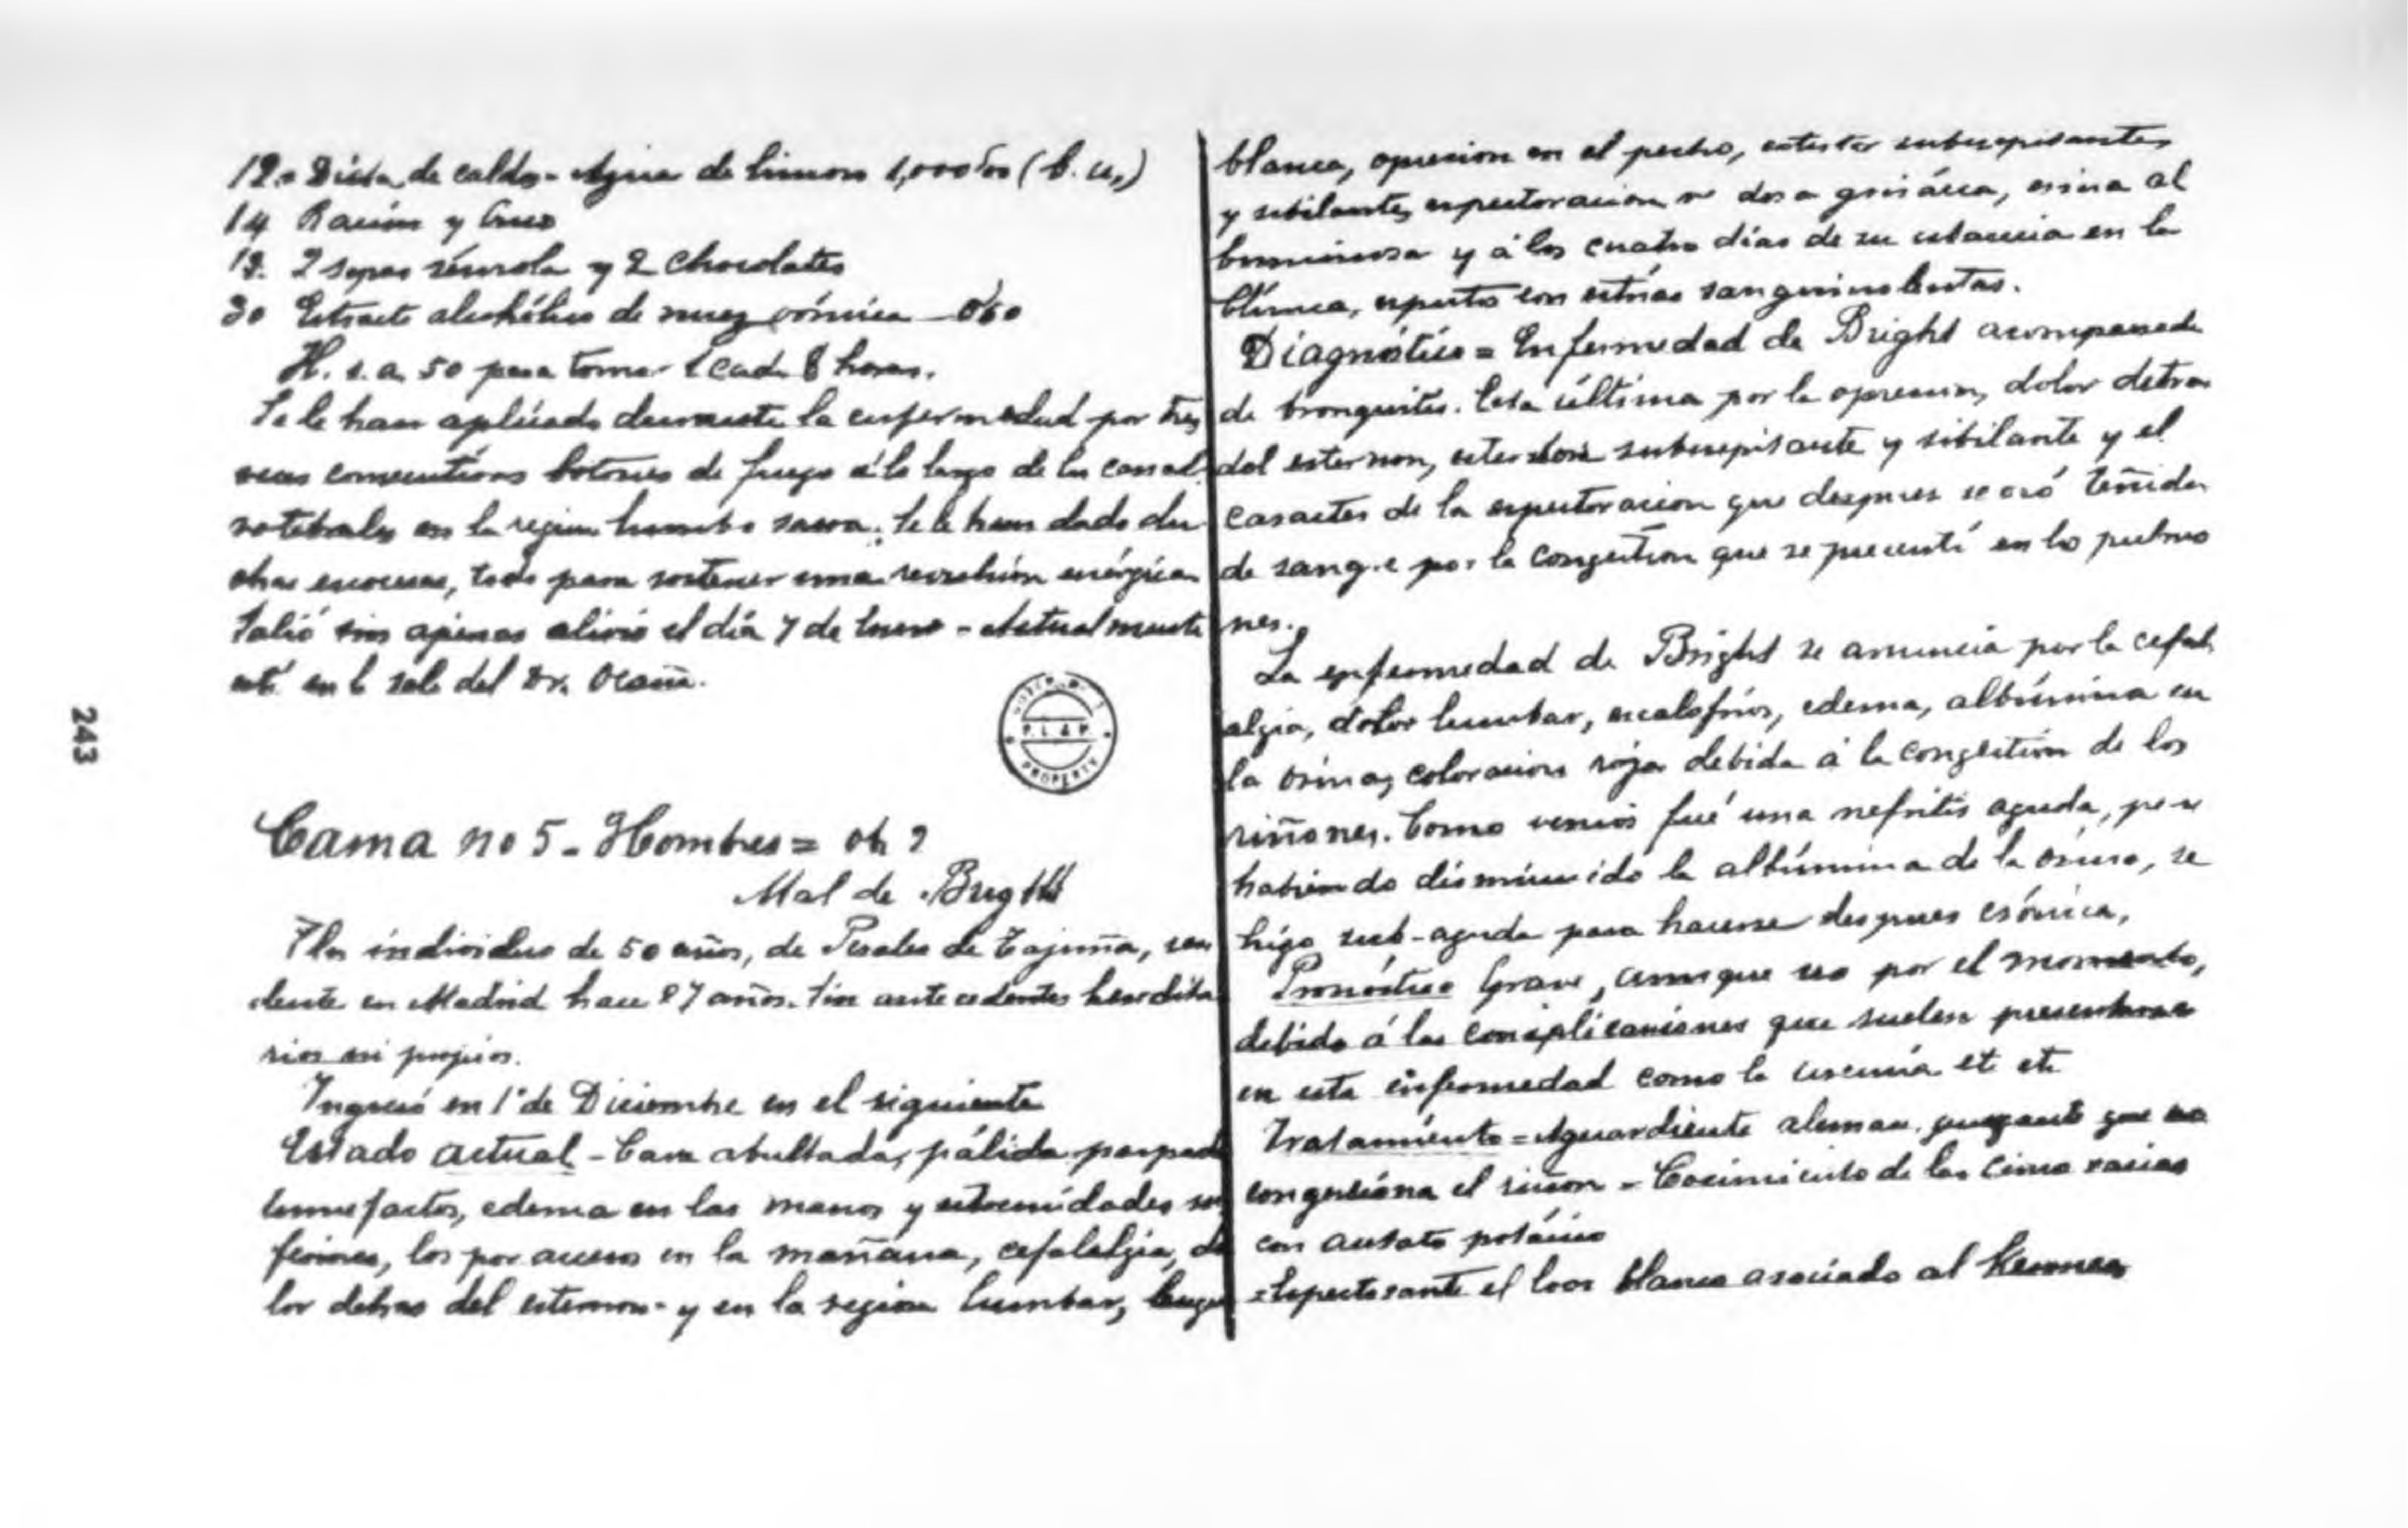 12. Dieta de caldo - Agua de limon 1,000'00 (b. u.)
14 Ración y
19. 2 sopas sémola y 2 chocolates
30 Extracto alcohólico de nuez vómica — 0'60
H. s. a. 50 para tomar 1 cada 8 horas.
Se le han aplicado durante la enfermedad por tres
veces consecutivas botones de fuego á lo largo de la canal
vertebral, en la region lumbo sacra; se le han dado du-
chas escocesas, todo para sostener una revulsión enérgica
Salió sin apenas alivio el día 7 de Enero - Actualmente
está en la sala del Dr. Ocaña.
243
PROPERTY
Cama no 5 - Hombres =
Mal de Brigth
individuo de 50 años, de Perales de Tajuña, resi
dente en Madrid hace 27 años. Sin antecedentes heredita
rios ni propios.
Ingresó en 1º de Diciembre en el siguiente
Estado actual - Cara abultada, pálida parpados
tumefactos, edema en las manos y extremidades in
feriores, tos por accesos en la mañana, cefalalgia, do
lor detras del esternon y en la region lumbar, lengua
blanca, opresion en el pecho, estertor subcrepitantes
y sibilantes, expectoracion grisácea, orina al
buminosa y á los cuatro días de su estancia en la
Clínica, esputos con estrías sanguinolentas.
Diagnóstico = Enfermedad de Bright acompañada
de bronquitis. Esta última por la opresion, dolor detras
del esternon, estertor subcrepitante y sibilante y el
caracter de la expectoracion que despues se vió teñida
de sangre por la congestion que se presentó en lo pulmo
nes.
La enfermedad de Bright se anuncia por la cefal
algia, dolor lumbar, escalofrios, edema, albúmina en
la orina, coloracion roja debida á la congestion de los
riñones. Como vemos fué una nefritis aguda, pero
habiendo disminuido la albúmina de la orina, se
hizo sub-aguda para hacerse despues crónica,
Pronóstico Grave, aunque no por el momento,
debido á las complicaciones que suelen presentarse
en esta enfermedad como la uremia et etc
Tratamiento = Aguardiente aleman, purgante que no
congestióna el riñon - Cocimiento de las cinco raices
con acetato potásico
= Expectorante el looc blanco asociado al Kermes